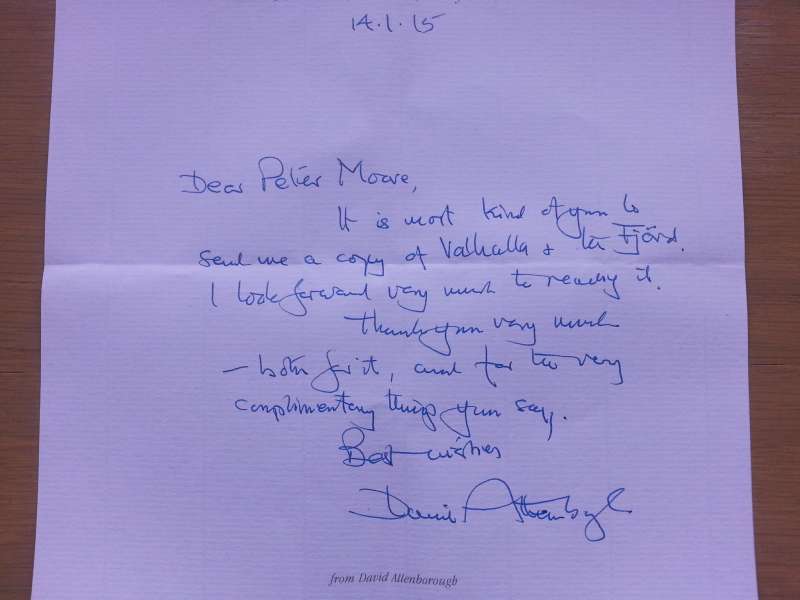 14.1.15
Dear Peter Moore,
It is most kind of you to
send me a copy of Valhalla & the Fjörd.
I look forward very much to reading it.
Thank you very much
– both for it, and for the very
complimentary things you say.
Best wishes
David Attenborough
from David Attenborough